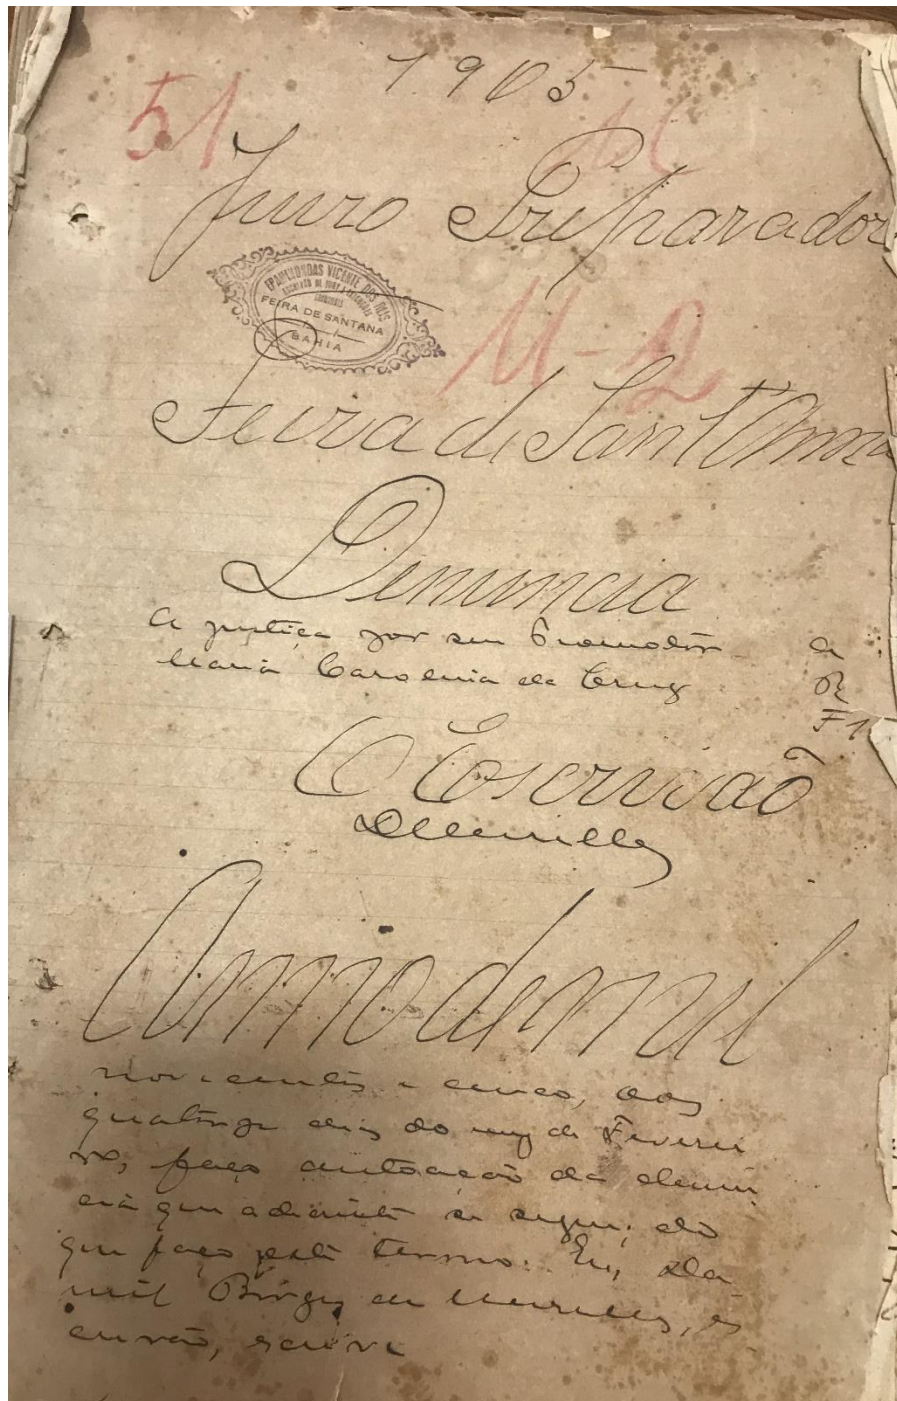 1905
51
Juizo Preparador
EPAMINONDAS VICENTE DOS REIS
FEIRA DE SANTANA
BAHIA
M-2
Feira de Sant'Anna
Denuncia
A justiça por seu Promotor A
Maria Carolina da Cruz R
F1
O Escrivão
DMeirelles
Anno de mil
novecentos e cinco, aos
quatorze dias do mez de Feverei
ro, faço autoação da denun
cia que adiante se segue; do
que faço este termo. Eu, Da
mil Borges de Meirelles, es
crivão, escrevi